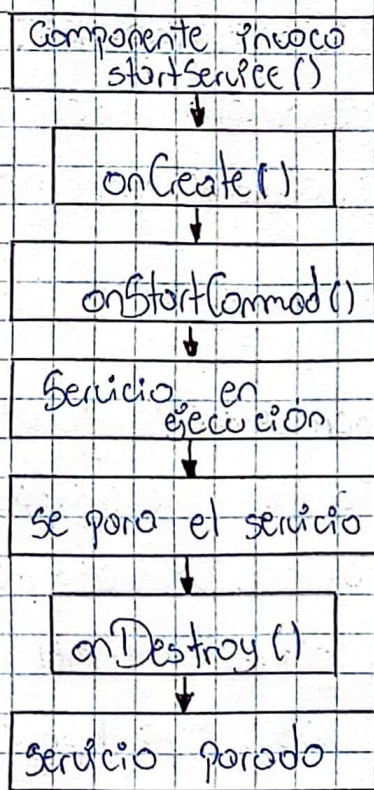 Componente invoco
startService()
onCreate()
onStartCommad()
Servicio en
ejecución
se para el servicio
onDestroy()
servicio parado